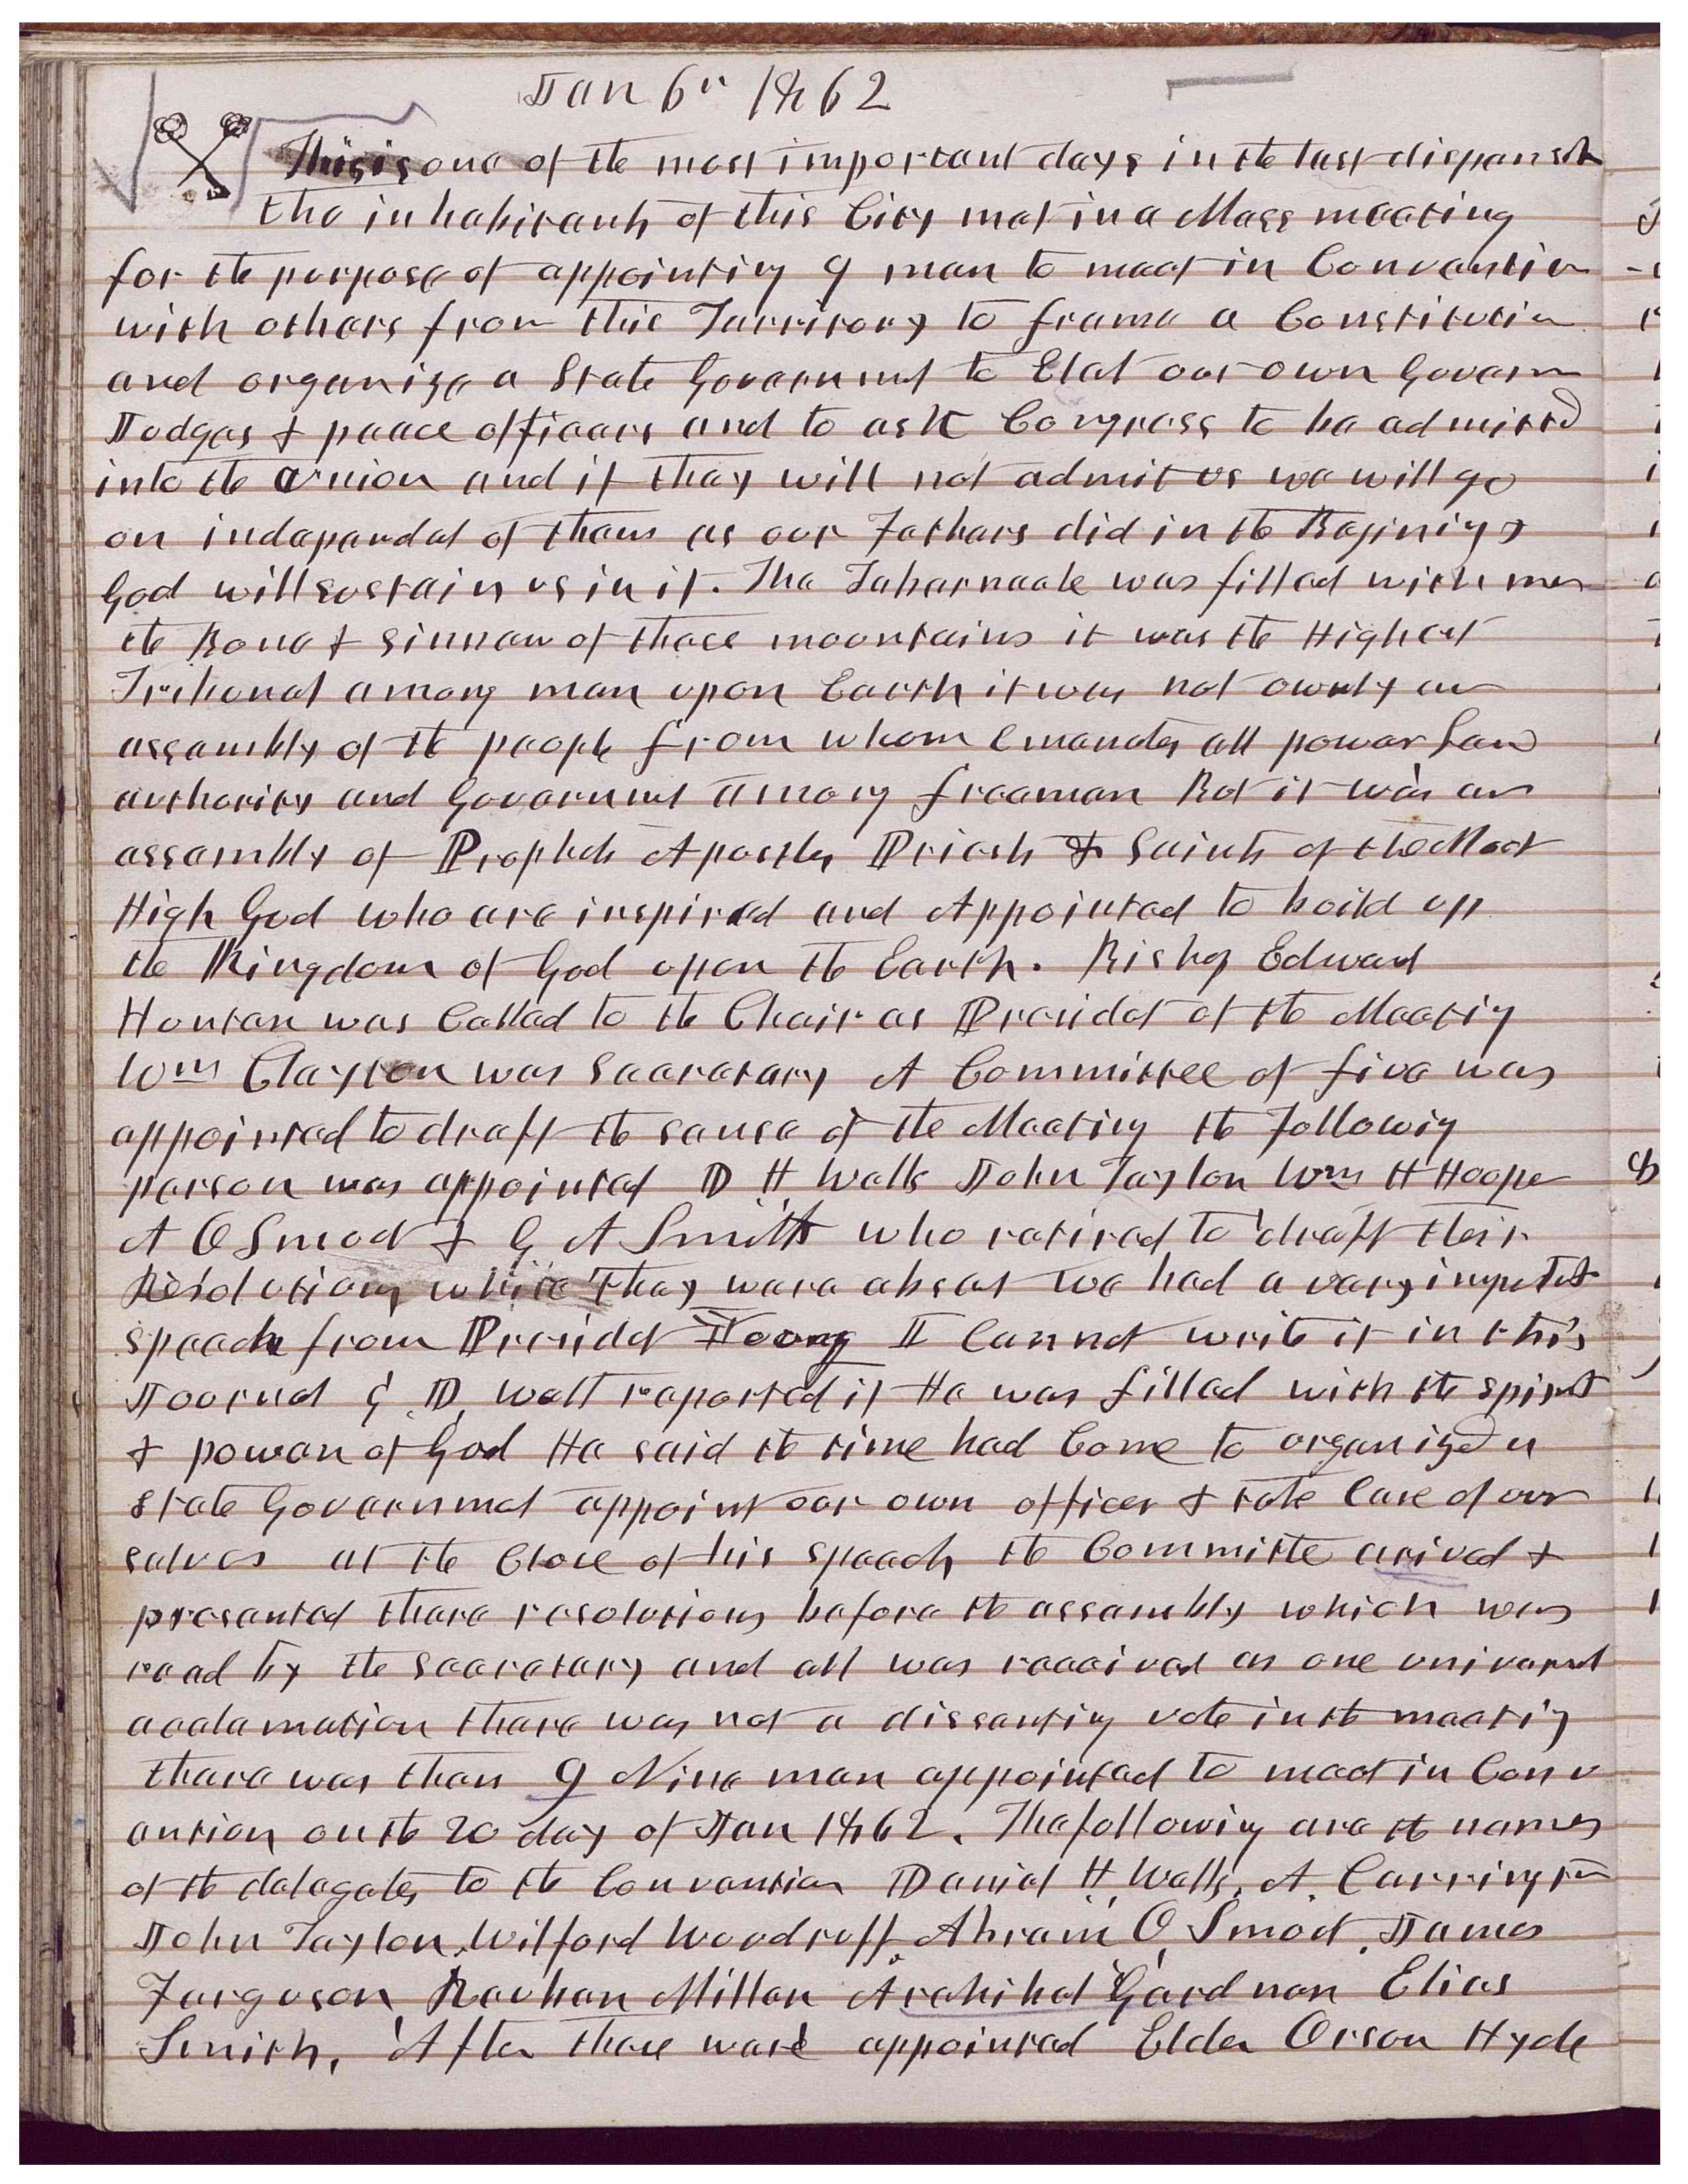 Jan 6th 1862
This is one of the most important days in the last dispensat
the inhabitants of this City met in a Mass meeting
for the purpose of appointing 9 men to meet in Convention
with others from this Territory to frame a Constitution
and organize a State Government to Elect our own Govern
Judges & peace officers and to ask Congress to be admitted
into the Union and if they will not admit us we will go
on independet of them as our Fathers did in the Begining &
God will sustain us in it. The Tabernacle was filled with men
the Bone & Sinnew of these mountains it was the Highest
Tribunal among men upon Earth it was not ownly an
assembly of the people from whom Emanates all power Law
authority and Government among freemen But it was an
assembly of Prophets Apostles Priests & Saints of the Most
High God who are inspired and Appointed to build up
the Kingdom of God upon the Earth. Bishop Edward
Hunter was Called to the Chair as Presidet of the Meeting
Wm Clayton was Secretary A Committee of five was
appointed to draft the sense of the Meeting the Following
person was appointed D H Wells John Taylor Wm H Hooper
A O Smoot & G A Smith who retired to draft their
Resolutions while They were absent we had a very imputet
speech from Presidet Young I Cannot write it in this
Journal G. D. Watt reported it He was filled with the spirit
& power of God He said the time had Come to organize a
State Governmet appoint our own officer & take Care of our
selves at the Close of his speech the Committe arived &
presented there resolutions before the assembly which was
read by the Secretary and all was received as one universal
acclamation there was not a dissenting vote in the meeting
there was then 9 Nine men appointed to meet in Conv
ention on the 20 day of Jan 1862. The following are the names
of the delegates to the Convention Daniel H. Wells, A. Carrington
John Taylor, Wilford Woodruff, Abram O Smoot, James
Furguson Reuben Miller Archibal Gardner Elias
Smith, After these ware appointed Elder Orson Hyde